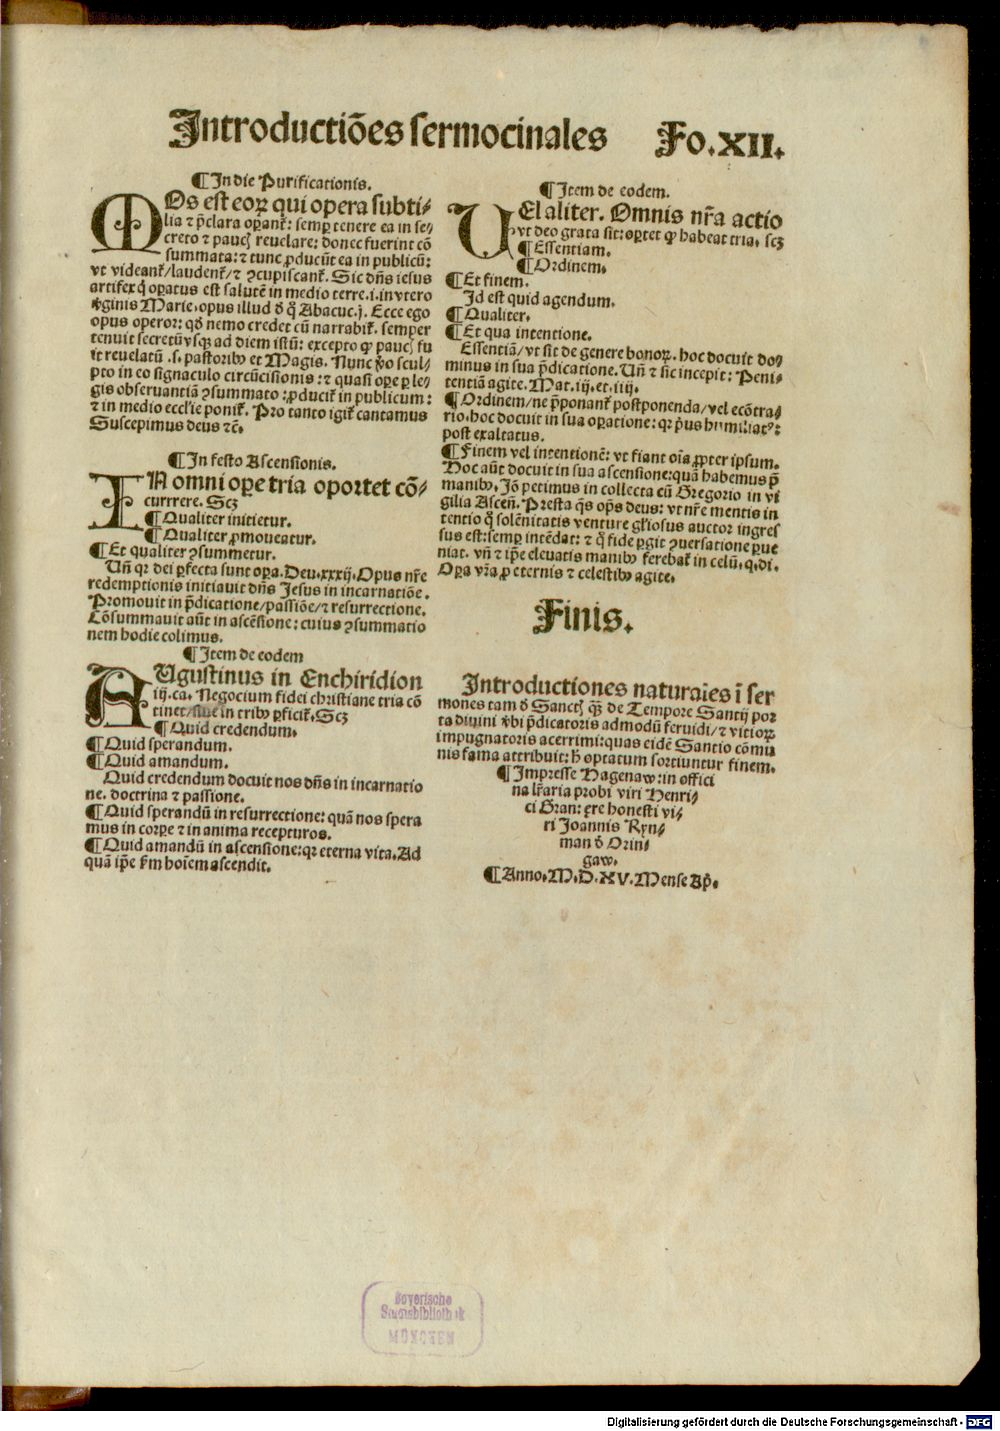 Introductiões sermocinales Fo.XII.
¶In die Purificationis.
MOs est eoꝝ qui opera subti⸗
lia ⁊ p̄clara oꝑant᷑: semꝑ tenere ea in se⸗
creto ⁊ paucꝭ reuelare: donec fuerint cō
summata: ⁊ tunc ꝓducūt ea in publicū:
vt videant᷑/laudent᷑/⁊ ꝯcupiscant᷑. Sic dn̄s iesus
artifex q̇ oꝑatus est salutē in medio terre.i.in vtero
v̓ginis Marie, opus illud d̓ q̊ Abacuc.j. Ecce ego
opus operor: qd̓ nemo credet cū narrabit᷑. semper
tenuit secretū vsqꝫ ad diem istū: excepto ꝙ paucꝭ fu
it reuelatū .s. pastoribꝰ et Magis. Nunc v̓o scul⸗
pto in eo signaculo circūcisionis: ⁊ quasi oꝑe ꝑ le⸗
gis obseruantiā ꝯsummato: ꝓducit᷑ in publicum:
⁊ in medio eccl'ie ponit᷑. Pro tanto igit᷑ cantamus
Suscepimus deus ⁊c̄.
¶In festo Ascensionis.
IN omni oꝑe tria oportet cō⸗
currrere. Scꝫ
¶Qualiter initietur.
¶Qualiter ꝓmoueatur.
¶Et qualiter ꝯsummetur.
Vn̄ qꝛ dei ꝑfecta sunt oꝑa. Deu.xxxij. Opus nr̄e
redemptionis initiauit dn̄s Jesus in incarnatiōe.
Promouit in p̄dicatione/passiōe/⁊ resurrectione.
Cōsummauit aūt in ascēsione: cuius ꝯsummatio
nem hodie colimus.
¶Item de eodem
AUgustinus in Enchiridion
iij.ca. Negocium fidei christiane tria cō
tinet/siue in tribꝰ ꝑficit᷑. Scꝫ
¶Quid credendum.
¶Quid sperandum.
¶Quid amandum.
Quid credendum docuit nos dn̄s in incarnatio
ne, doctrina ⁊ passione.
¶Quid sperandū in resurrectione: quā nos spera
mus in corꝑe ⁊ in anima recepturos.
¶Quid amandū in ascensione: qꝛ eterna vita. Ad
quā ip̄e ẜm hoīem ascendit.
¶Item de eodem.
VEl aliter. Omnis nr̄a actio
vt deo grata sit: oꝑtet ꝙ habeat tria. scꝫ
¶Essentiam.
¶Ordinem.
¶Et finem.
Id est quid agendum.
¶Qualiter.
¶Et qua intentione.
Essentiā/vt sit de genere bonoꝝ. hoc docuit do⸗
minus in sua p̄dicatione. Vn̄ ⁊ sic incepit: Peni⸗
tentiā agite. Mat.iij.et.iiij.
¶Ordinem/ne p̄ponant᷑ postponenda/vel ecōtra⸗
rio. hoc docuit in sua oꝑatione: qꝛ p̓us humiliatꝰ:
post exaltatus.
¶Finem vel intentionē: vt fiant oīa ꝓpter ipsum.
Hoc aūt docuit in sua ascensione: quā habemus p̄
manibꝰ. Iō petimus in collecta cū Gregorio in vi
gilia Ascen̄. Presta q̄s op̄s deus: vt nr̄e mentis in
tentio q̊ solēnitatis venture gl'iosus auctor ingres
sus est: semꝑ intēdat: ⁊ q̊ fide ꝑgit ꝯuersatione ꝑue
niat. vn̄ ⁊ ip̄e eleuatis manibꝰ ferebat᷑ in celū. q.di.
Oꝑa vr̄a ꝓ eternis ⁊ celestibꝰ agite.
Finis.
Introductiones naturales ī ser
mones tam d̓ Sanctꝭ qꝫ de Tempore Santij por
ta diuini v̓bi p̄dicatoris admodū feruidi/⁊ vitioꝝ
impugnatoris acerrimi: quas eidē Santio cōmu
nis fama attribuit: h̓ optatum sortiuntur finem.
¶Impresse Hagenaw: in offici
na lr̄aria probi viri Henri⸗
ci Gran: ex̄e honesti vi⸗
ri Joannis Ryn⸗
man d̓ Orin⸗
gaw.
¶Anno. M.D.XV. Mense Ap̄.
Bayerische
Staatsbibliothek
MÜNCHEN
Digitalisierung gefördert durch die Deutsche Forschungsgemeinschaft - DFG